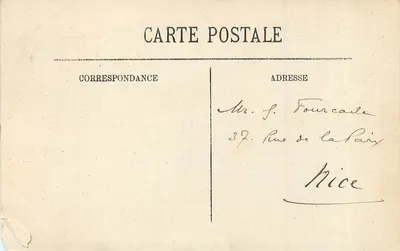 CARTE POSTALE
CORRESPONDANCE
ADRESSE
Mr. J. Fourcade
37. Rue de la Paix
Nice